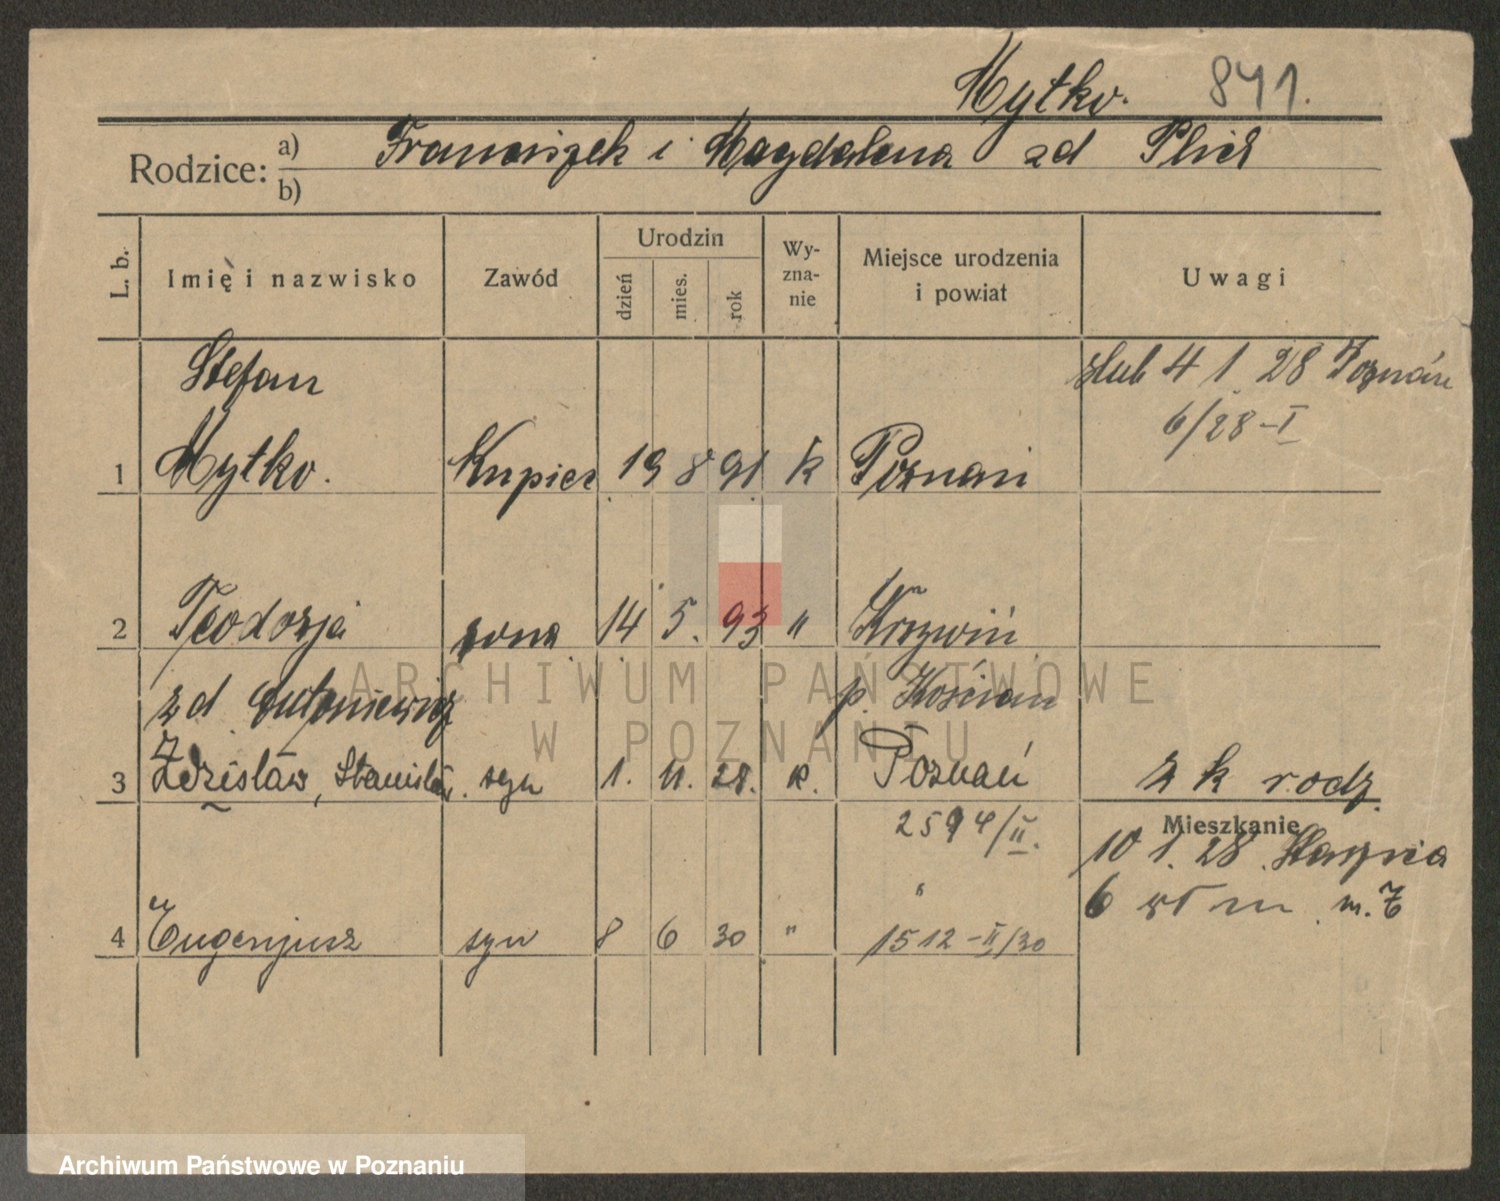 Mytko. 841.
Rodzice: a) Franciszek i Magdalena zd
b)
L. b. Imię i nazwisko Zawód Urodzin dzień mies. rok Wy-zna-nie Miejsce urodzenia i powiat Uwagi
Stefan ślub 4 1 28 Poznań
6/28-I
1 Mytko. Kupiec 19 8 91 k Poznań
2 Teodozja żona 14 5. 93 " Krzywiń
zd Antoniewicz p. Kościan
3 Zdzisław, Stanisław. syn 1. 11. 28. k. Poznań 2 k rodz.
2594/II. Mieszkanie
10 1. 28.
" 6 m. 7
4 Eugenjusz syn 8 6 30 " 1512-II/30
ARCHIWUM PAŃSTWOWE
W POZNANIU
Archiwum Państwowe w Poznaniu